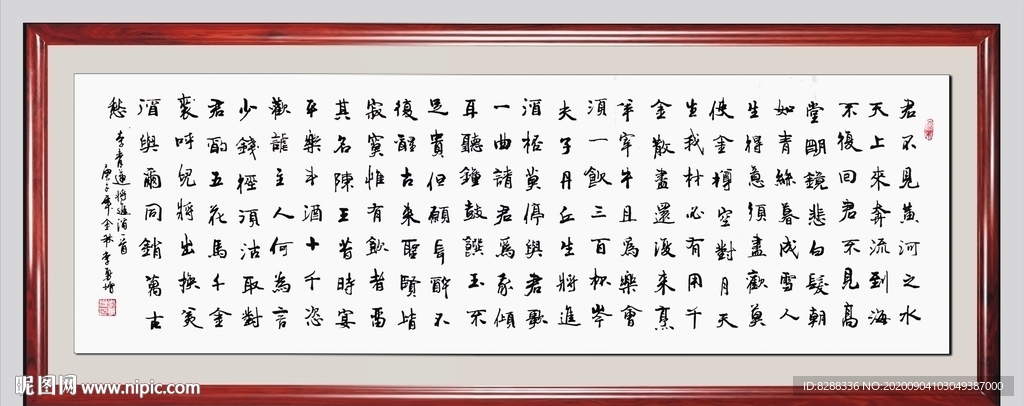 君不見黃河之水
天上來奔流到海
不復回君不見高
堂明鏡悲白髮朝
如青絲暮成雪人
生得意須盡歡莫
使金樽空對月天
生我材必有用千
金散盡還復來烹
羊宰牛且為樂會
須一飲三百杯岑
夫子丹丘生將進
酒極莫停與君歌
一曲請君為我傾
耳聽鐘鼓饌玉不
足貴但願長醉不
復醒古來聖賢皆
寂寞惟有飲者留
其名陳王昔時宴
平樂斗酒十千恣
歡謔主人何為言
少錢徑須沽取對
君酌五花馬千金
裘呼兒將出換美
酒與爾同銷萬古
愁
李青蓮將進酒一首
庚子年金秋李
昵图网 www.nipic.com
ID:8288336 NO:20200904103049387000